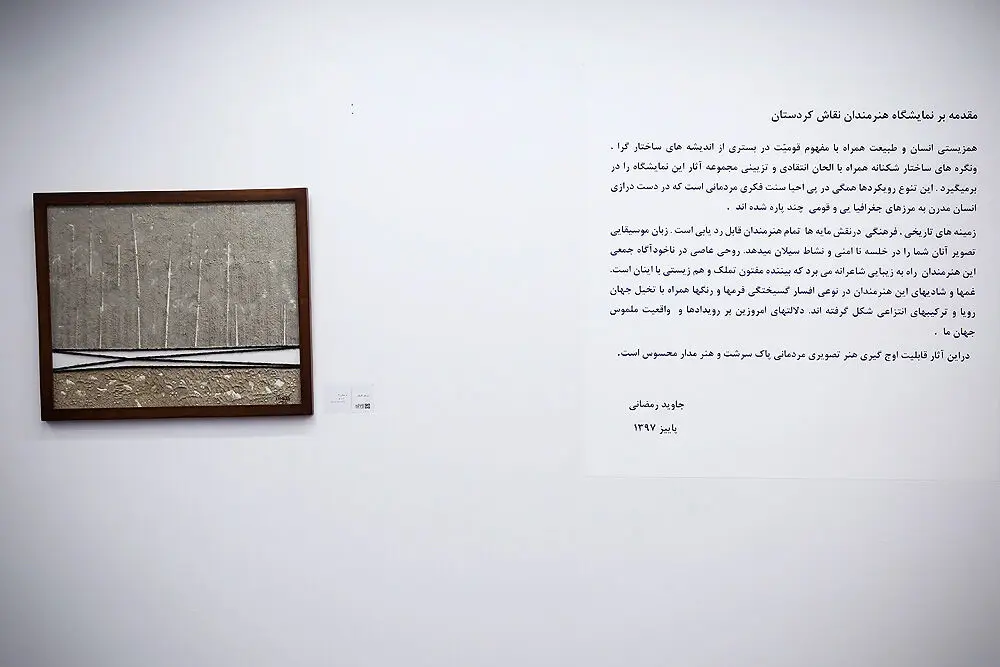 مقدمه بر نمایشگاه هنرمندان نقاش کردستان
همزیستی انسان و طبیعت همراه با مفهوم قومیّت در بستری از اندیشه های ساختار گرا ،
ونگره های ساختار شکنانه همراه با الحان انتقادی و تزیینی مجموعه آثار این نمایشگاه را در
برمیگیرد . این تنوع رویکردها همگی در پی احیا سنت فکری مردمانی است که در دست درازی
انسان مدرن به مرزهای جغرافیا یی و قومی چند پاره شده اند .
زمینه های تاریخی ، فرهنگی درنقش مایه ها تمام هنرمندان قابل رد یابی است . زبان موسیقایی
تصویر آنان شما را در خلسه نا امنی و نشاط سیلان میدهد. روحی عاصی در ناخودآگاه جمعی
این هنرمندان راه به زیبایی شاعرانه می برد که بیننده مفتون تملک و هم زیستی با اینان است.
غمها و شادیهای این هنرمندان در نوعی افسار گسیختگی فرمها و رنگها همراه با تخیل جهان
رویا و ترکیبهای انتزاعی شکل گرفته اند. دلالتهای امروزین بر رویدادها و واقعیت ملموس
جهان ما .
دراین آثار قابلیت اوج گیری هنر تصویری مردمانی پاک سرشت و هنر مدار محسوس است.
جاوید رمضانی
پاییز ۱۳۹۷